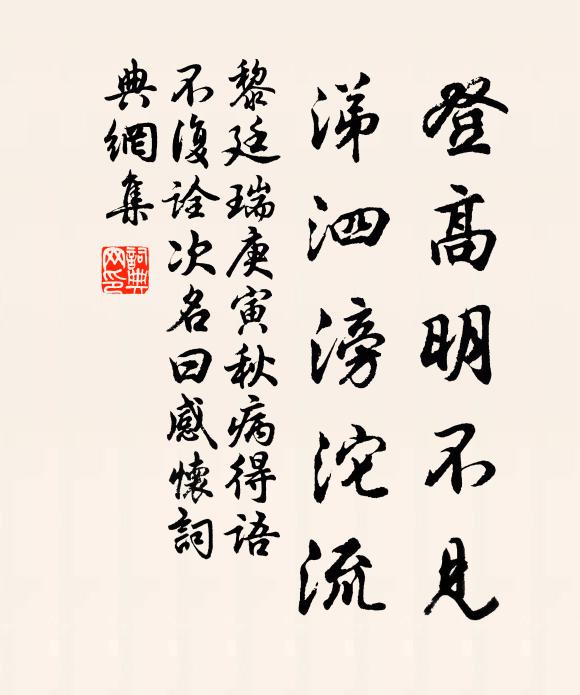 登高明不見
涕泗滂沱流
黎廷瑞庚寅秋病得语
不復詮次名曰感懷詞
典網集
詞典网印